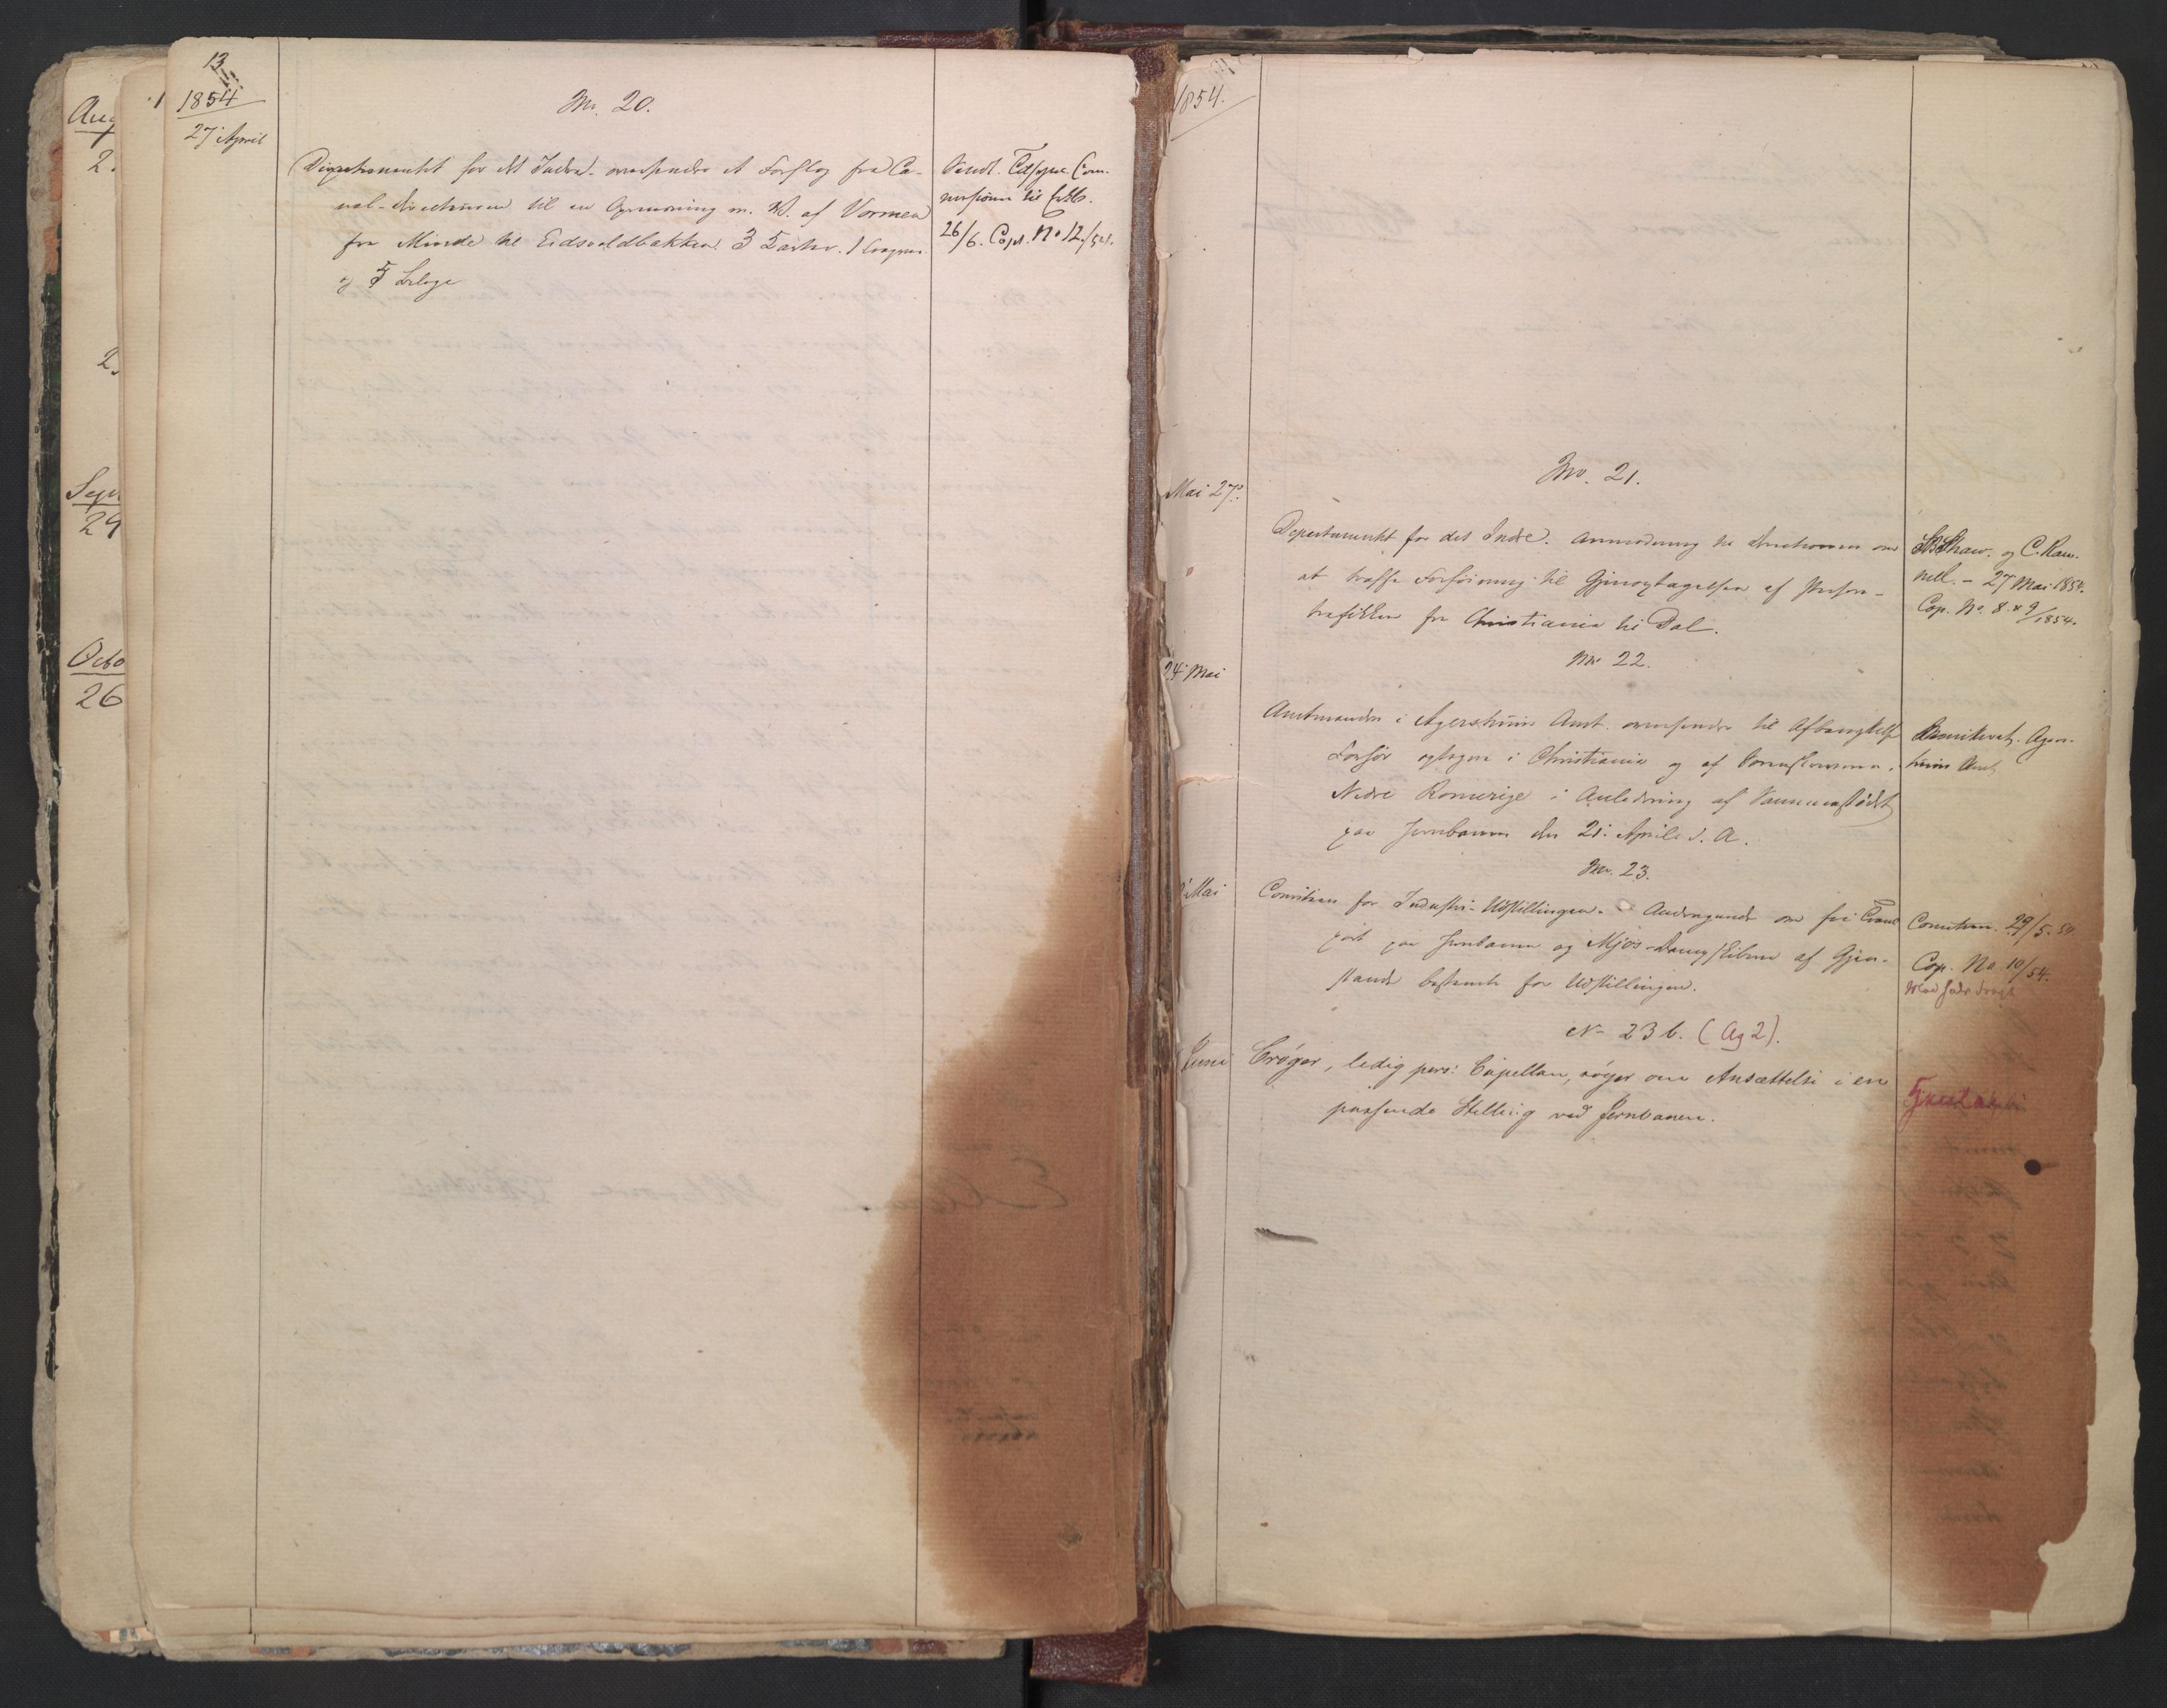 13
1854
27' April
No. 20.
Departementet for det Indre. oversender et Forslag fra Ca-
nal-directeuren til en Opmudring m. V. af Vormen
fra Minde til Eidsvoldbakken. 3 Karter. 1
og 5 Bilage
26/6. Cop. No 12./54.
Aug
2
2
Sept
29
Octo
26
1854.
No. 21.
Mai 27.
Departementet for det Indre. Anmodning til Directionen om
at træffe Forføining til Gjenoptagelsen af Person-
trafikken fra Christiania til Dal.
Shaw. og C. Ram-
mell. - 27 Mai 1854.
Cop. No. 8. & 9/1854.
No 22.
24' Mai
Amtmanden i Agershuus Amt. oversender til Afbenyttelse
Forhør optagen i Christiania og af
Nedre Romerige i Anledning af Sammenstødet
paa Jernbanen den 21. April d. A.
Ager-
huus Amt
No. 23.
Mai
Comiteen for Industri-Udstillingen. Andragende om fri Trans-
port paa Jernbanen og Mjös-Dampskibene af Gjen-
stande bestemte for Udstillingen.
Comiteen. 29/5. 54
Cop. No 10/54.
N- 23 b. (Ag 2).
Juni
Crøger, ledig pers: Capellan, søger om Ansættelse i en
passende Stilling ved Jernbanen.